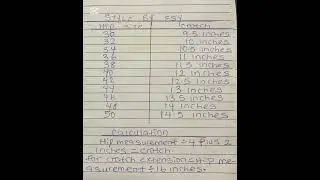 STYLE BY ESY
HIP SIZE CROTCH
30 9.5 inches
32 10 inches
34 10.5 inches
36 11 inches
38 11.5 inches
40 12 inches
42 12.5 inches
44 13 inches
46 13.5 inches
48 14 inches
50 14.5 inches
Calculation
Hip measurement ÷ 4 plus 2
inches = crotch.
for crotch extension = H.P me-
asurement ÷ 16 inches.